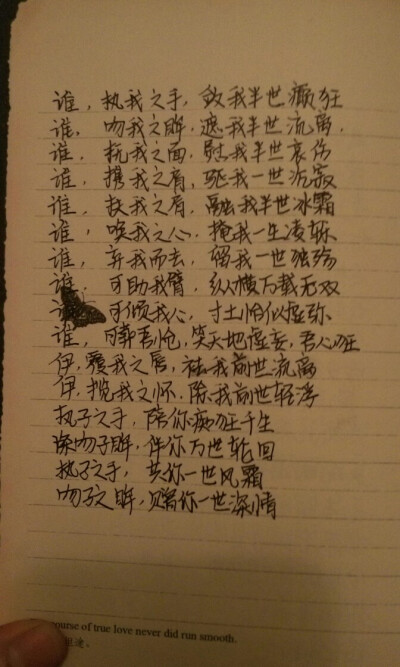 谁，执我之手，敛我半世癫狂
谁，吻我之眸，遮我半世流离，
谁，抚我之面，慰我半世哀伤
谁，携我之肩，驱我一世沉寂
谁，扶我之肩，融我半世冰霜
谁，唤我之心，掩我一生凌轹
谁，弃我而去，留我一世独殇
谁，可助我臂，纵横万载无双
谁，可倾我心，寸土恰似虚弥
谁，可葬吾怆，笑天地虚妄，吾心狂
伊，覆我之唇，祛我前世流离
伊，揽我之怀，除我前世轻浮
执子之手，陪你痴狂千生
深吻子眸，伴你万世轮回
执子之手，共你一世风霜
吻子之眸，赠你一世深情
course of true love never did run smooth.